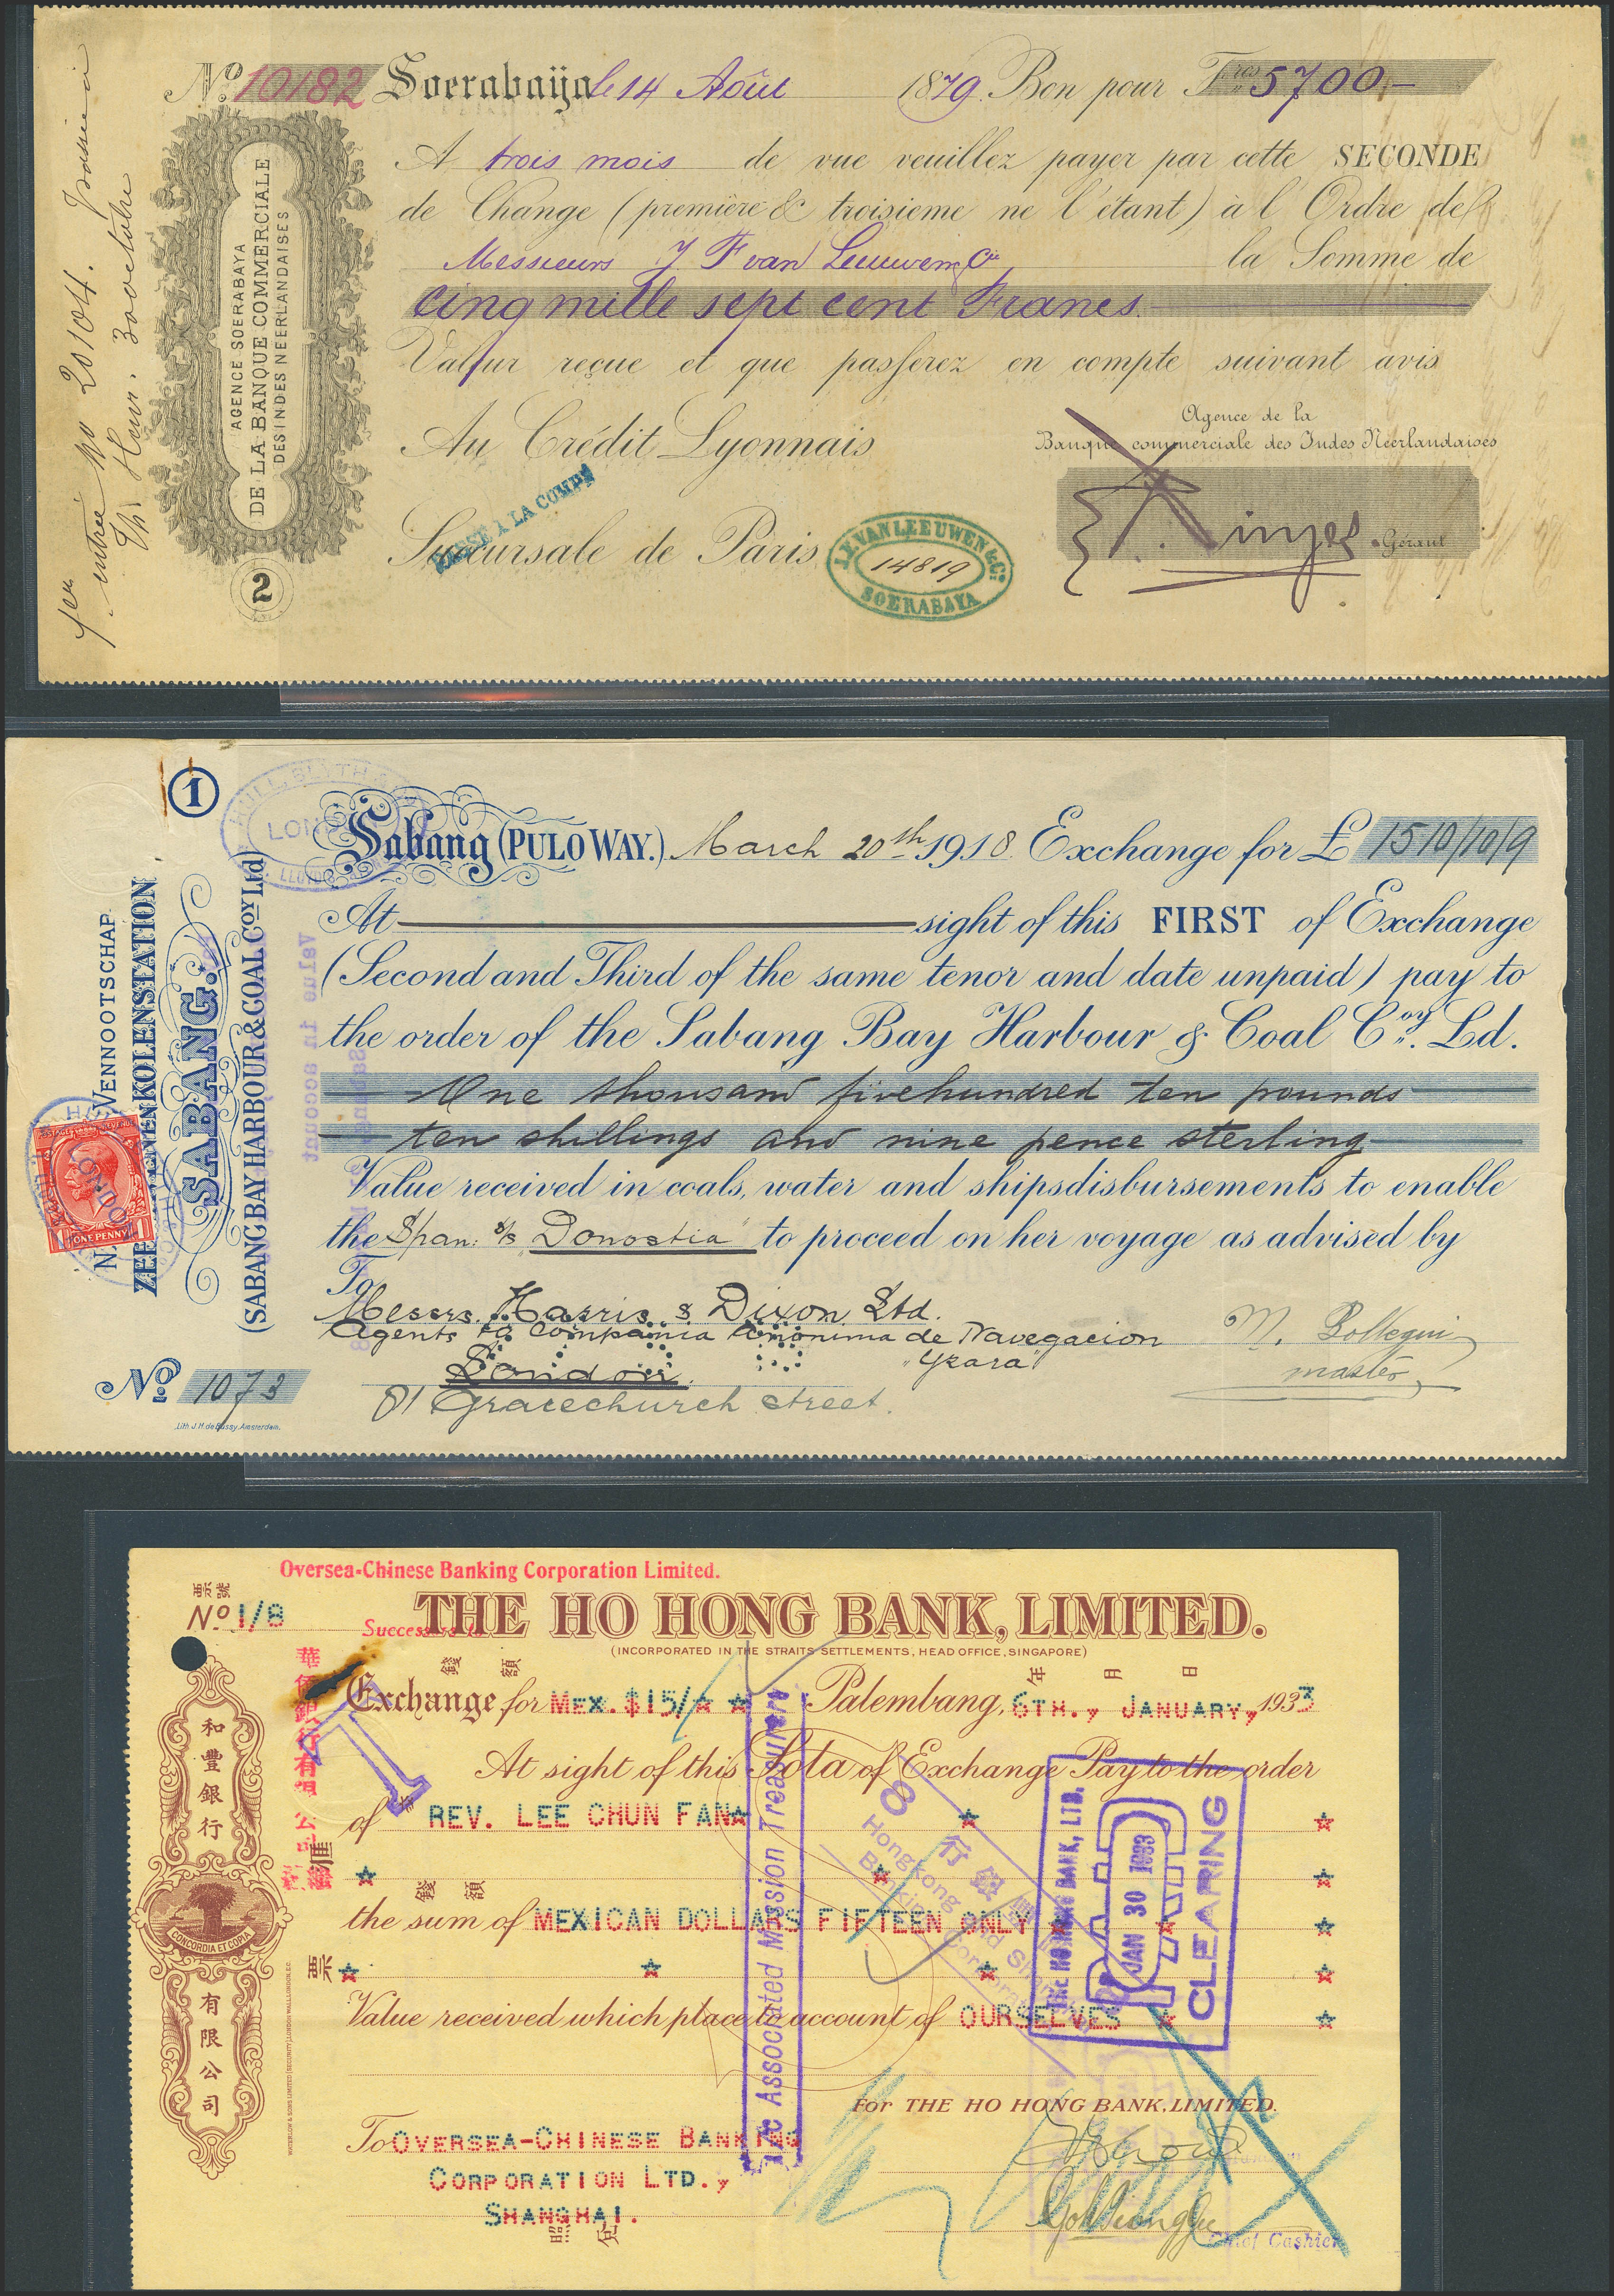 No. 10182 Soerabaija le 14 Août 1879. Bon pour Frcs 5700,-
A trois mois de vue veuillez payer par cette SECONDE
de Change (première & troisième ne l'étant) à l'Ordre de
Messieurs J F van Leeuwen & Cie la Somme de
Cinq mille sept cent Francs
Valeur reçue et que passerez en compte suivant avis
Au Crédit Lyonnais
Succursale de Paris
Agence de la
Banque commerciale des Indes Néerlandaises
Gérant
PASSÉ A LA COMPE
J.F. VAN LEEUWEN & Co.
14819
SOERABAYA
AGENCE SOERABAYA
DE LA BANQUE COMMERCIALE
DES INDES NEERLANDAISES
2
entrée No 20104.
1
HULL, BLYTH
LONDON
LLOYDS
Sabang (PULO WAY.) March 20th 1918. Exchange for £ 1510/10/9
At sight of this FIRST of Exchange
(Second and Third of the same tenor and date unpaid) pay to
the order of the Sabang Bay Harbour & Coal Coy. Ld.
One thousand fivehundred ten pounds
ten shillings and nine pence sterling
Value received in coals, water and shipsdisbursements to enable
the Span: s/s "Donostia" to proceed on her voyage as advised by
To
Messrs. Harris & Dixon Ltd.
Agents to Compania Anonima de Navegacion
"Yzara"
London.
81 Gracechurch street.
M.
master
No. 1073
Lith. J.H. de Bussy, Amsterdam.
N. VENNOOTSCHAP
ZEEHAVEN EN KOLENSTATION
SABANG.
(SABANG BAY HARBOUR & COAL COY Ltd)
POSTAGE REVENUE
ONE PENNY
Value in account
Oversea-Chinese Banking Corporation Limited.
票號
No. 1/8
Successors to
THE HO HONG BANK, LIMITED.
(INCORPORATED IN THE STRAITS SETTLEMENTS, HEAD OFFICE, SINGAPORE)
錢額
年 月 日
Exchange for MEX. $15/- Palembang, 6TH., JANUARY, 1933
At sight of this Sola of Exchange Pay to the order
of REV. LEE CHUN FAN
錢額
the sum of MEXICAN DOLLARS FIFTEEN ONLY
Value received which place to account of OURSELVES
For THE HO HONG BANK, LIMITED.
To OVERSEA-CHINESE BANKING
CORPORATION LTD.,
SHANGHAI.
Chief Cashier
和豐銀行
CONCORDIA ET COPIA
有限公司
匯
票
WATERLOW & SONS LIMITED
A/c Associated Mission Treasurers
Hongkong and Shanghai
Banking Corporation
THE HO HONG BANK, LTD.
PAID
JAN 30 1933
CLEARING